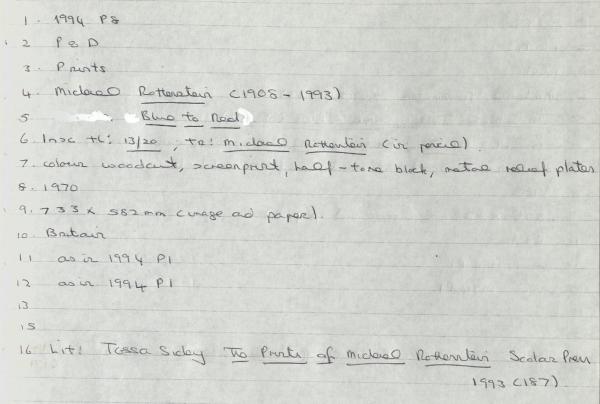 1. 1994 P8
2 P & D
3. Prints
4. Michael Rothenstein (1908 - 1993)
5 Blue to Red
6. Insc tl: 13/20, tr: Michael Rothenstein (in pencil).
7. colour woodcut, screenprint, half-tone block, metal relief plates
8. 1970
9. 733 x 582 mm (image and paper).
10. Britain
11 as in 1994 P1
12 as in 1994 P1
13
15
16 Lit: Tessa Sidey The Prints of Michael Rothenstein Scolar Press
1993 (187)